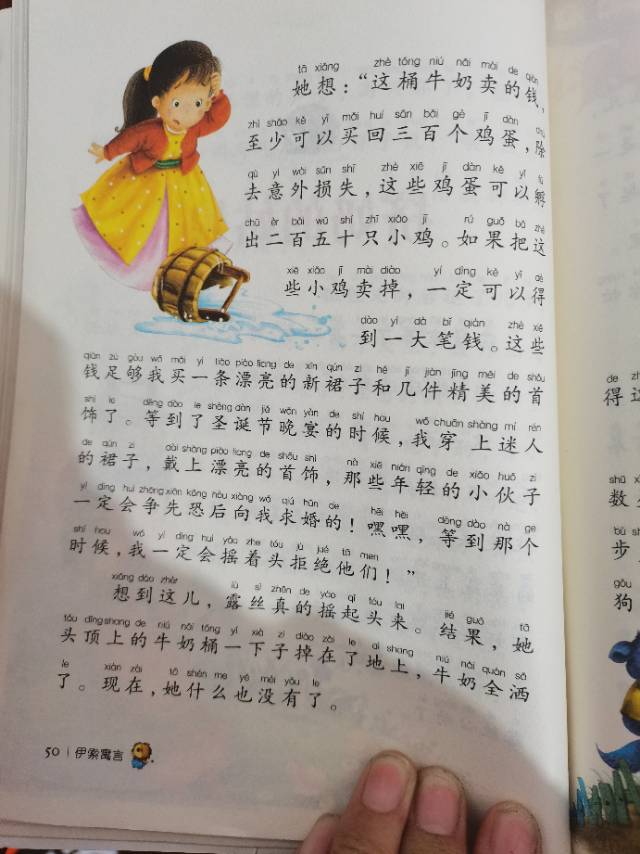 tā xiǎng zhè tǒng niú nǎi mài de qián
她想：“这桶牛奶卖的钱，
zhì shǎo kě yǐ mǎi huí sān bǎi gè jī dàn chú
至少可以买回三百个鸡蛋，除
qù yì wài sǔn shī zhè xiē jī dàn kě yǐ fū
去意外损失，这些鸡蛋可以孵
chū èr bǎi wǔ shí zhī xiǎo jī rú guǒ bǎ zhè
出二百五十只小鸡。如果把这
xiē xiǎo jī mài diào yí dìng kě yǐ dé
些小鸡卖掉，一定可以得
dào yì dà bǐ qián zhè xiē
到一大笔钱。这些
qián zú gòu wǒ mǎi yì tiáo piào liang de xīn qún zi hé jǐ jiàn jīng měi de shǒu
钱足够我买一条漂亮的新裙子和几件精美的首
shì le děng dào le shèng dàn jié wǎn yàn de shí hou wǒ chuān shàng mí rén
饰了。等到了圣诞节晚宴的时候，我穿上迷人
de qún zi dài shàng piào liang de shǒu shì nà xiē nián qīng de xiǎo huǒ zi
的裙子，戴上漂亮的首饰，那些年轻的小伙子
yí dìng huì zhēng xiān kǒng hòu xiàng wǒ qiú hūn de hēi hēi děng dào nà ge
一定会争先恐后向我求婚的！嘿嘿，等到那个
shí hou wǒ yí dìng huì yáo zhe tóu jù jué tā men
时候，我一定会摇着头拒绝他们！”
xiǎng dào zhèr lù sī zhēn de yáo qǐ tóu lai jié guǒ tā
想到这儿，露丝真的摇起头来。结果，她
tóu dǐng shang de niú nǎi tǒng yí xià zi diào zài le dì shang niú nǎi quán sǎ
头顶上的牛奶桶一下子掉在了地上，牛奶全洒
le xiàn zài tā shén me yě méi yǒu le
了。现在，她什么也没有了。
50 | 伊索寓言
de
得这
数
bù
步
gǒu
狗